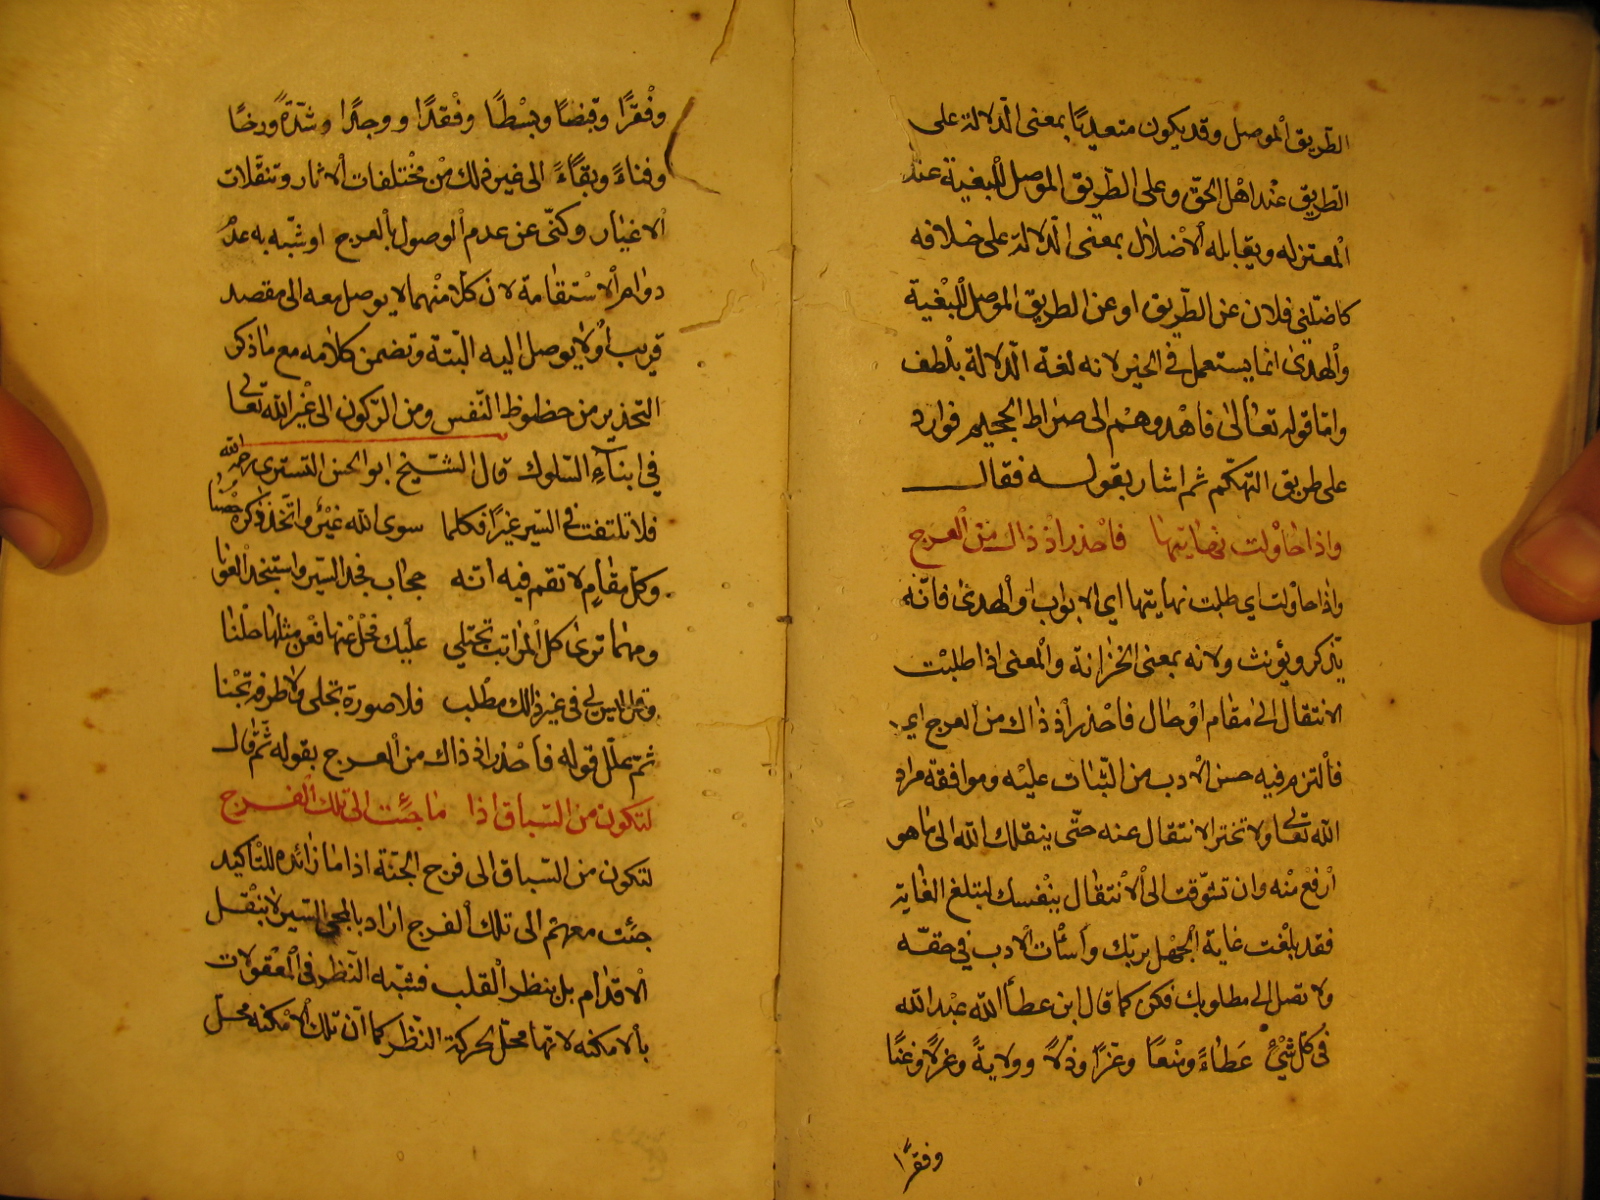 الطّريق الموصل وقد يكون متعديًا بمعنى الدّلالة على
الطّريق عند اهل الحقّ وعلى الطّريق الموصل للبغية عند
المعتزله ويقابله الاضلال بمعنى الدّلالة على خلافه
كاضلّنى فلان عن الطّريق او عن الطريق الموصل للبغية
والهدى انما يستعمل فى الخير لانه لغة الدّلالة بلطف
وامّا قوله تعالى فاهدوهم الى صراط الجحيم فوارد
على طريق التهكّم ثم اشار بقوله فقال
واذا حاولت نهايتها فاحذر اذ ذاك من العرج
واذا حاولت اى طلبت نهايتها اى الابواب والهدى فانّه
يذّكر ويؤنث ولانه بمعنى الخزانة والمعنى اذا طلبت
الانتقال الى مقام او حال فاحذر اذ ذاك من العرج اى
فالتزم فيه حسن الادب من الثّبات عليه وموافقة مراد
الله تعالى ولا تختر الانتقال عنه حتّى ينقلك الله الى ما هو
ارفع منه وان تشوّقت الى الانتقال بنفسك لتبلغ الغاية
فقد بلغت غاية الجهل بربّك واسأت الادب فى حقّه
ولا تصل الى مطلوبك فكن كما قال ابن عطاء الله عبد الله
فى كلّ شىءٍ عطاءً ومنعًا وعزًا وذلًا وولايةً وعزلًا وغنًا
وفقرًا
وفقرًا وقبضًا وبسْطًا وفقدًا ووجدًا وشدّةً ورخا
وفناءً وبقاءً الى غير ذلك من مختلفات الاثار وتنقّلات
الاغيار وكنّى عن عدم الوصول بالعرج او شبّه به عدم
دوام الاستقامة لان كلّا منهما لا يوصل معه الى مقصد
قريب اولا يوصل اليه البتة وتضمن كلامه مع ما ذكر
التحذير من حظوظ النّفس ومن الرّكون الى غير الله تعالى
فى ابناء السّلوك قال الشّيخ ابو الحسن التسترى رحمه الله
فلا تلتفت فى السّير غيرًا فكلما سوى الله غيرٌ واتّخذ ذكره حصنا
وكلّ مقامٍ لا تقم فيه انّه حجاب فجدّ السّير واستنجد العونا
ومهما ترى كلّ المراتب تجتلى عليك فحل عنها فعن مثلها حلنا
وقل ليس لى فى غير ذلك مطلب فلا صورة تجلى ولا طرفة تجنا
ثمّ علّل قوله فاحذر اذ ذاك من العرج بقوله ثمّ قال
لتكون من السّباق اذا ما جئت الى تلك الفرج
لتكون من السّباق الى فرج الجنّة اذا ما زائده للتاكيد
جئت معهم الى تلك الفرج اراد بالمجى السّير لا بنقل
الاقدام بل بنظر القلب فشبّه النّظر فى المعقولات
بالامكنه لانّها محلّ لحركة النّظر كما انّ تلك الامكنه محلّ